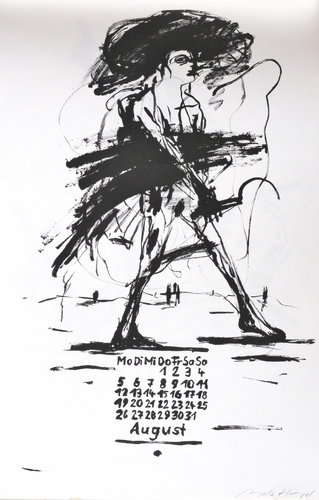 Mo Di Mi Do Fr Sa So
1 2 3 4
5 6 7 8 9 10 11
12 13 14 15 16 17 18
19 20 21 22 23 24 25
26 27 28 29 30 31
August